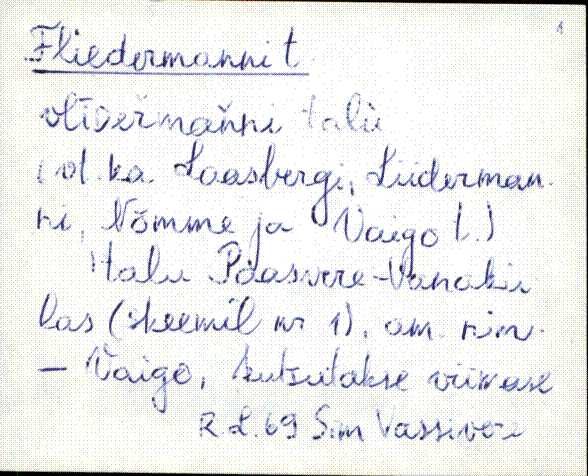 Fliedermanni t.
talù
(vt. ka Laasbergi, Liiderman-
ni, Nõmme ja Vaigo t.)
Talu Paasvere-Vanakü-
las (skeemil nr 1), am. nim.
– Vaigo, kutsutakse viimase
R. L. 69 Sim Vassivere